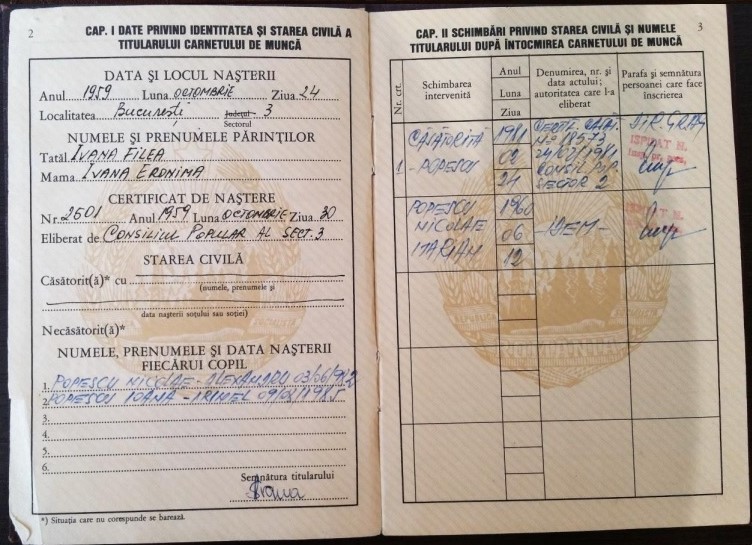 2
CAP. I DATE PRIVIND IDENTITATEA ȘI STAREA CIVILĂ A
TITULARULUI CARNETULUI DE MUNCĂ
DATA ȘI LOCUL NAȘTERII
Anul 1959 Luna OCTOMBRIE Ziua 24
Localitatea București Județul 3
Sectorul
NUMELE ȘI PRENUMELE PĂRINȚILOR
Tatăl IVANA FILEA
Mama IVANA ERONIMA
CERTIFICAT DE NAȘTERE
Nr. 2601 Anul 1959 Luna OCTOMBRIE Ziua 30
Eliberat de CONSILIUL POPULAR AL SECT. 3
STAREA CIVILĂ
Căsătorit(ă)* cu
(numele, prenumele și
data nașterii soțului sau soției)
Necăsătorit(ă)*
NUMELE, PRENUMELE ȘI DATA NAȘTERII
FIECĂRUI COPIL
1. POPESCU NICOLAE - ALEXANDRU
2. POPESCU IOANA - IRINEL
3.
4.
5.
6.
Semnătura titularului
*) Situația care nu corespunde se barează.
3
CAP. II SCHIMBĂRI PRIVIND STAREA CIVILĂ ȘI NUMELE
TITULARULUI DUPĂ ÎNTOCMIREA CARNETULUI DE MUNCĂ
Nr. crt.
Schimbarea
intervenită
Anul
Luna
Ziua
Denumirea, nr. și
data actului;
autoritatea care l-a
eliberat
Parafa și semnătura
persoanei care face
înscrierea
1
CĂSĂTORITĂ
- POPESCU
1981
02
24
24/02/1981
CONSIL. POP.
SECTOR 2
POPESCU
NICOLAE
MARIAN
1960
06
12
- IDEM -